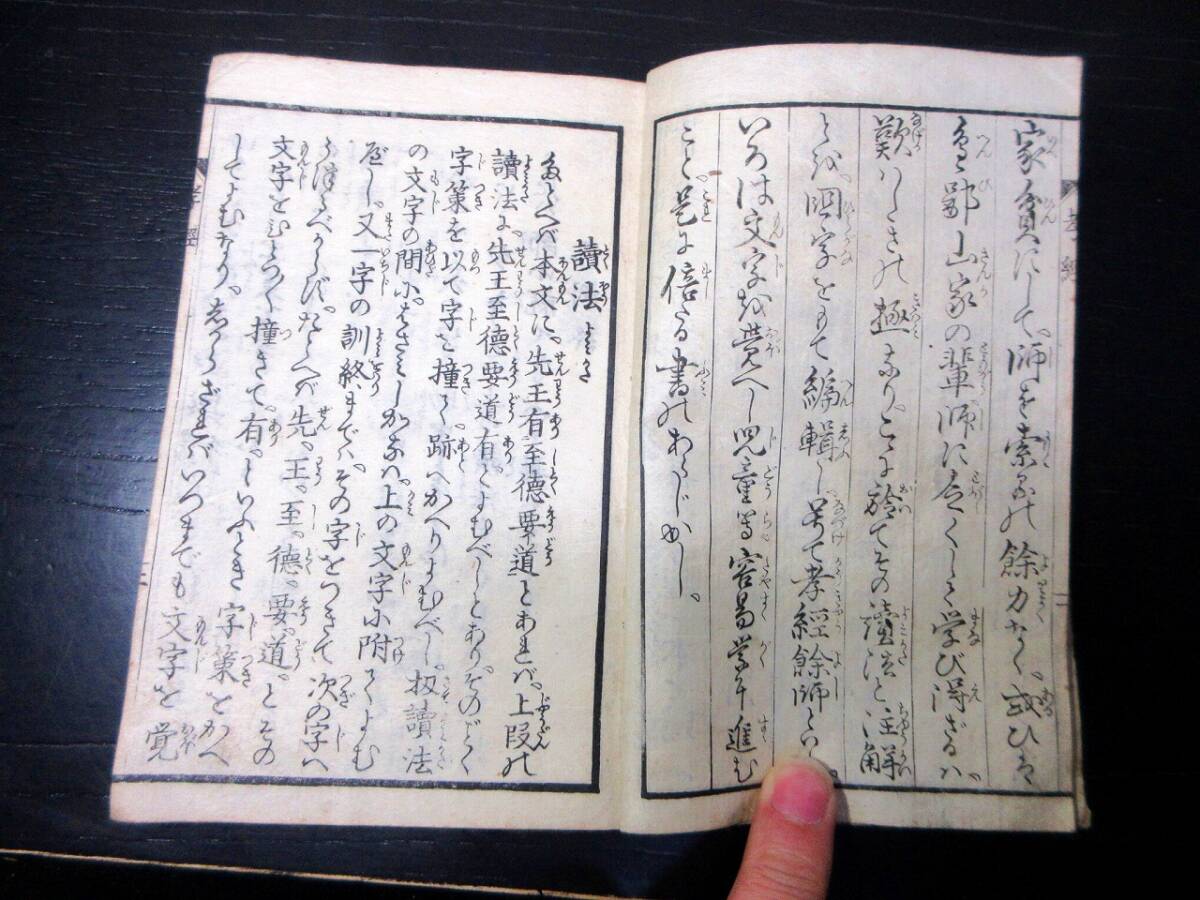 家貧にして。師を索るの餘力なく。或ひは
邉鄙山家の輩師に乏くして学び得ざるハ。
歎ハしきの極なり。こゝに於てその讀法と注解
とを。国字をもて編輯し。号て孝經餘師といふ。
いろは文字を覚へし児童等容易学び進む
こと。是に倍たる書のあらじかし。
讀法
たとへバ本文に。先王有至德要道とあれバ。上段の
讀法に。先王至德要道有。とよむべしとあり。そのごとく
字策を以て字を撞く。跡へかへりよむべし。扨讀法
の文字の間に。はさみしかなハ。上の文字に附てよむ
べし。又一字の訓終までハ。その字をつきて次の字へ
うつるべからず。たとへバ先。王。至。德。要。道。とその
文字をひとつ〱撞きて。有。といふとき字策をかへ
してよむなり。しからざれバいつまでも文字を覚